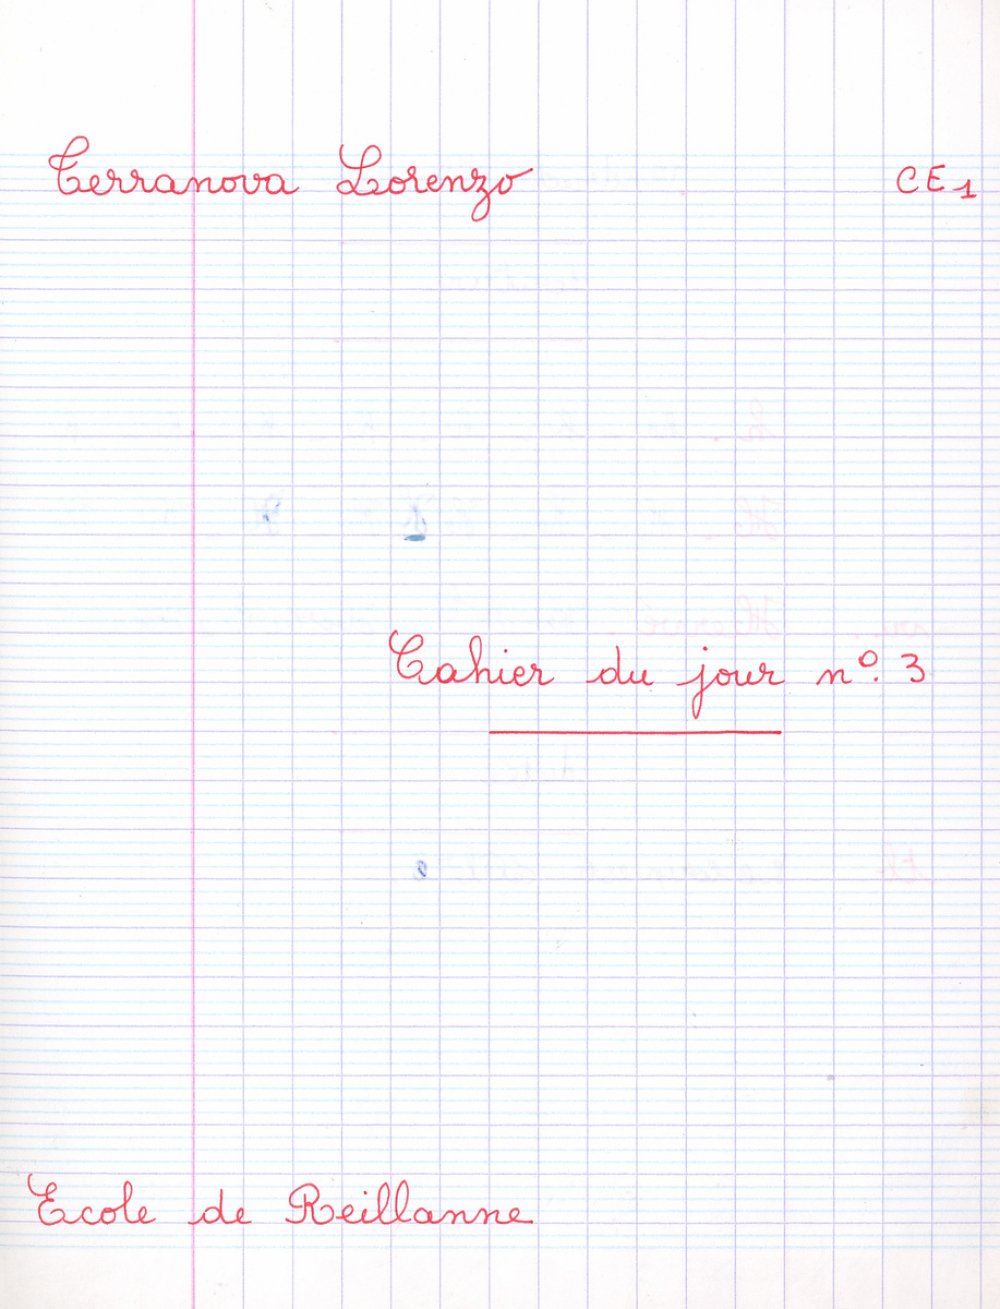 Terranova Lorenzo CE1
Cahier du jour n°. 3
Ecole de Reillanne